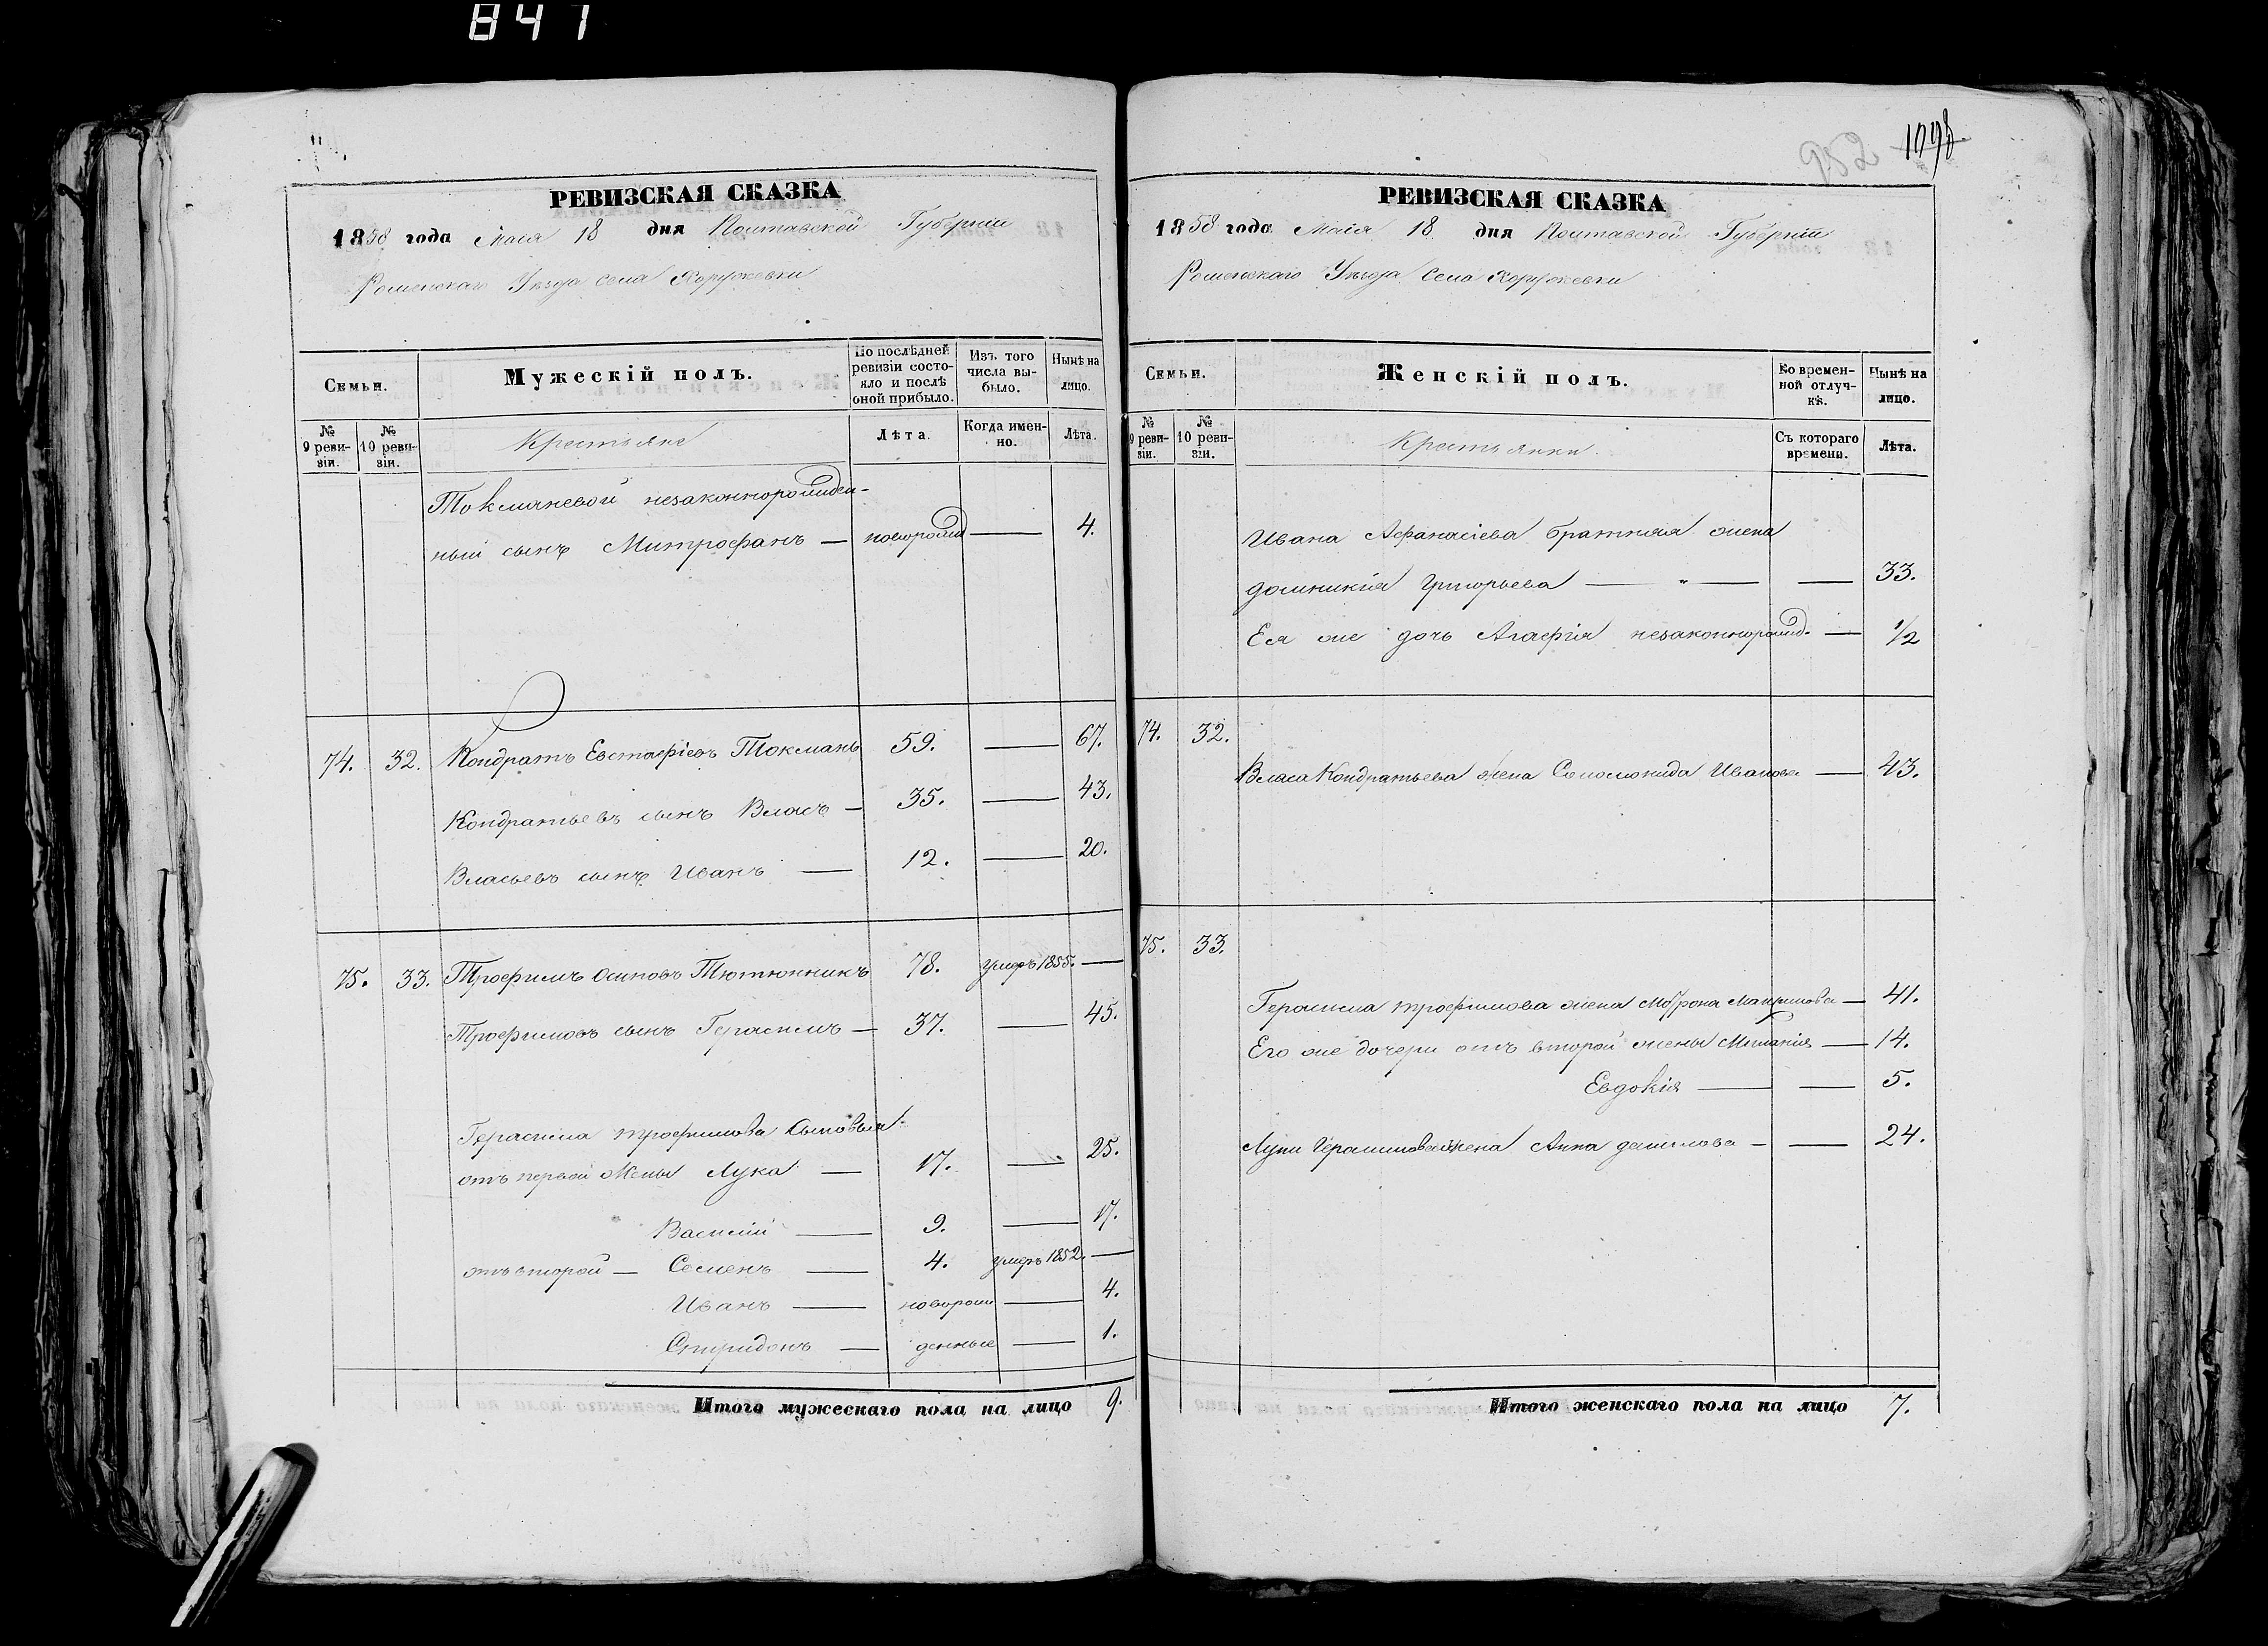 847
РЕВИЗСКАЯ СКАЗКА
1858 года Маія 18 дня Полтавской Губерніи
Роменскаго Уѣзда села Хоружевки
Семьи.
Мужескій полъ.
По послѣдней ревизіи состояло и послѣ оной прибыло.
Изъ того числа выбыло.
Нынѣ на лицо.
№ 9 ревизіи.
№ 10 ревизіи.
Крестьяне
Лѣта.
Когда именно.
Лѣта.
Токманевой незаконнорожден-
ный сынъ Митрофанъ — новорожд — 4.
74. 32. Кондратъ Евстафіевъ Токмань 59. — 67.
Кондратьевъ сынъ Власъ — 35. — 43.
Власьевъ сынъ Иванъ — 12. — 20.
75. 33. Трофимъ Осиповъ Тютюнникъ 78. умеръ 1855. —
Трофимовъ сынъ Герасимъ — 37. — 45.
Герасима Трофимова сыновья
отъ первой жены Лука — 17. — 25.
Василій — 9. — 17.
отъ второй — Семенъ — 4. умеръ 1852. —
Иванъ — новорож — 4.
Спиридонъ — денные — 1.
Итого мужескаго пола на лицо 9.
952 1098
РЕВИЗСКАЯ СКАЗКА
1858 года Маія 18 дня Полтавской Губерніи
Роменскаго Уѣзда села Хоружевки
Семьи.
Женскій полъ.
Во временной отлучкѣ.
Нынѣ на лицо.
№ 9 ревизіи.
№ 10 ревизіи.
Крестьянки.
Съ котораго времени.
Лѣта.
Ивана Афанасіева братняя жена
Домникія Григорьева — " — — 33.
Ея же дочь Агафія незаконнорожд. — 1/2
74. 32.
Власа Кондратьева жена Соломонида Иванова — 43.
75. 33.
Герасима Трофимова жена Мотрона — 41.
Его же дочери отъ второй жены Миланія — 14.
Евдокія — — 5.
Луки Герасимова жена Анна Данилова — — 24.
Итого женскаго пола на лицо 7.